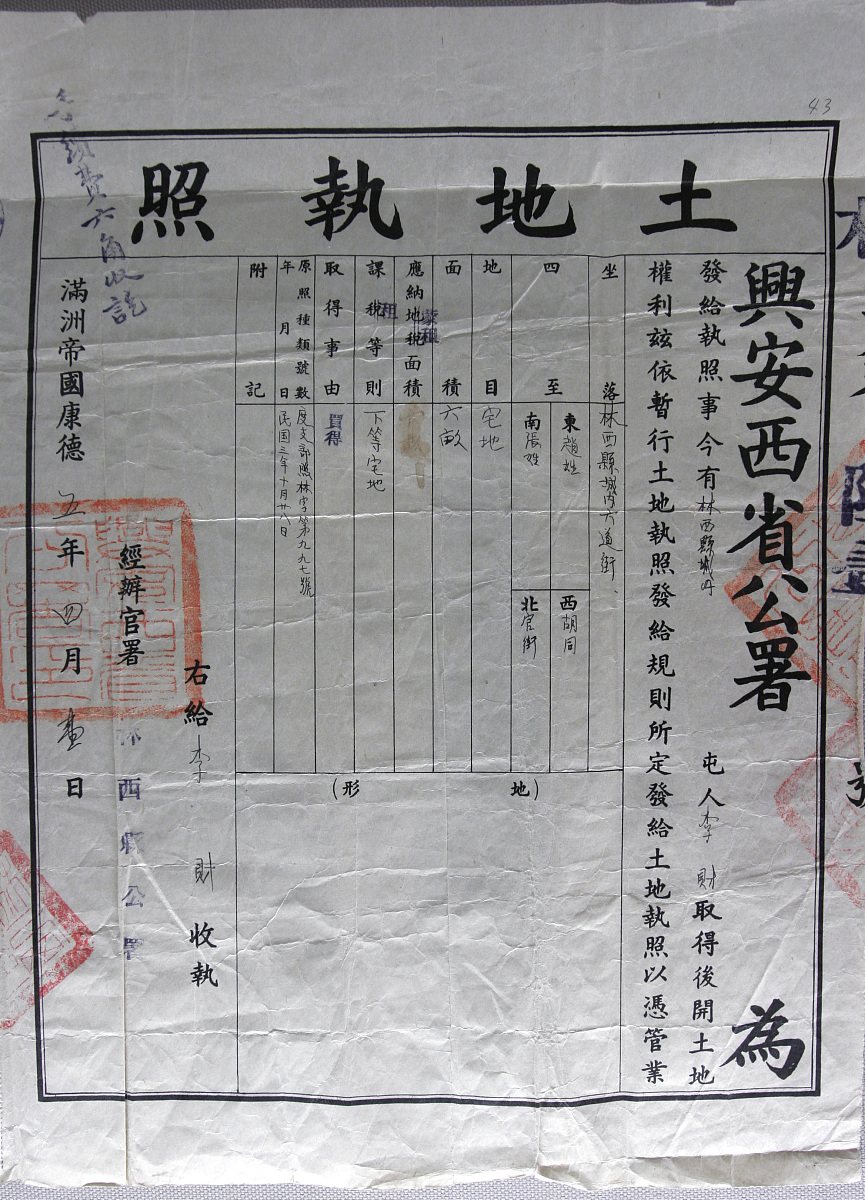 43
土地執照
興安西省公署為
發給執照事今有林西縣城內屯人李財取得後開土地
權利茲依暫行土地執照發給規則所定發給土地執照以憑管業
坐落 林西縣城內六道街
四至 東趙姓 西胡同
南張姓 北官街
地目 宅地
面積 六畝
應納地稅面積
課稅等則 下等宅地
租
取得事由 買得
原照種類號數 度支部照林字第九九七號
年月日 民国三年十月廿八日
附記
(地形)
右給李財收執
經辦官署 林西縣公署
滿洲帝國康德五年四月壹日
費六角收訖